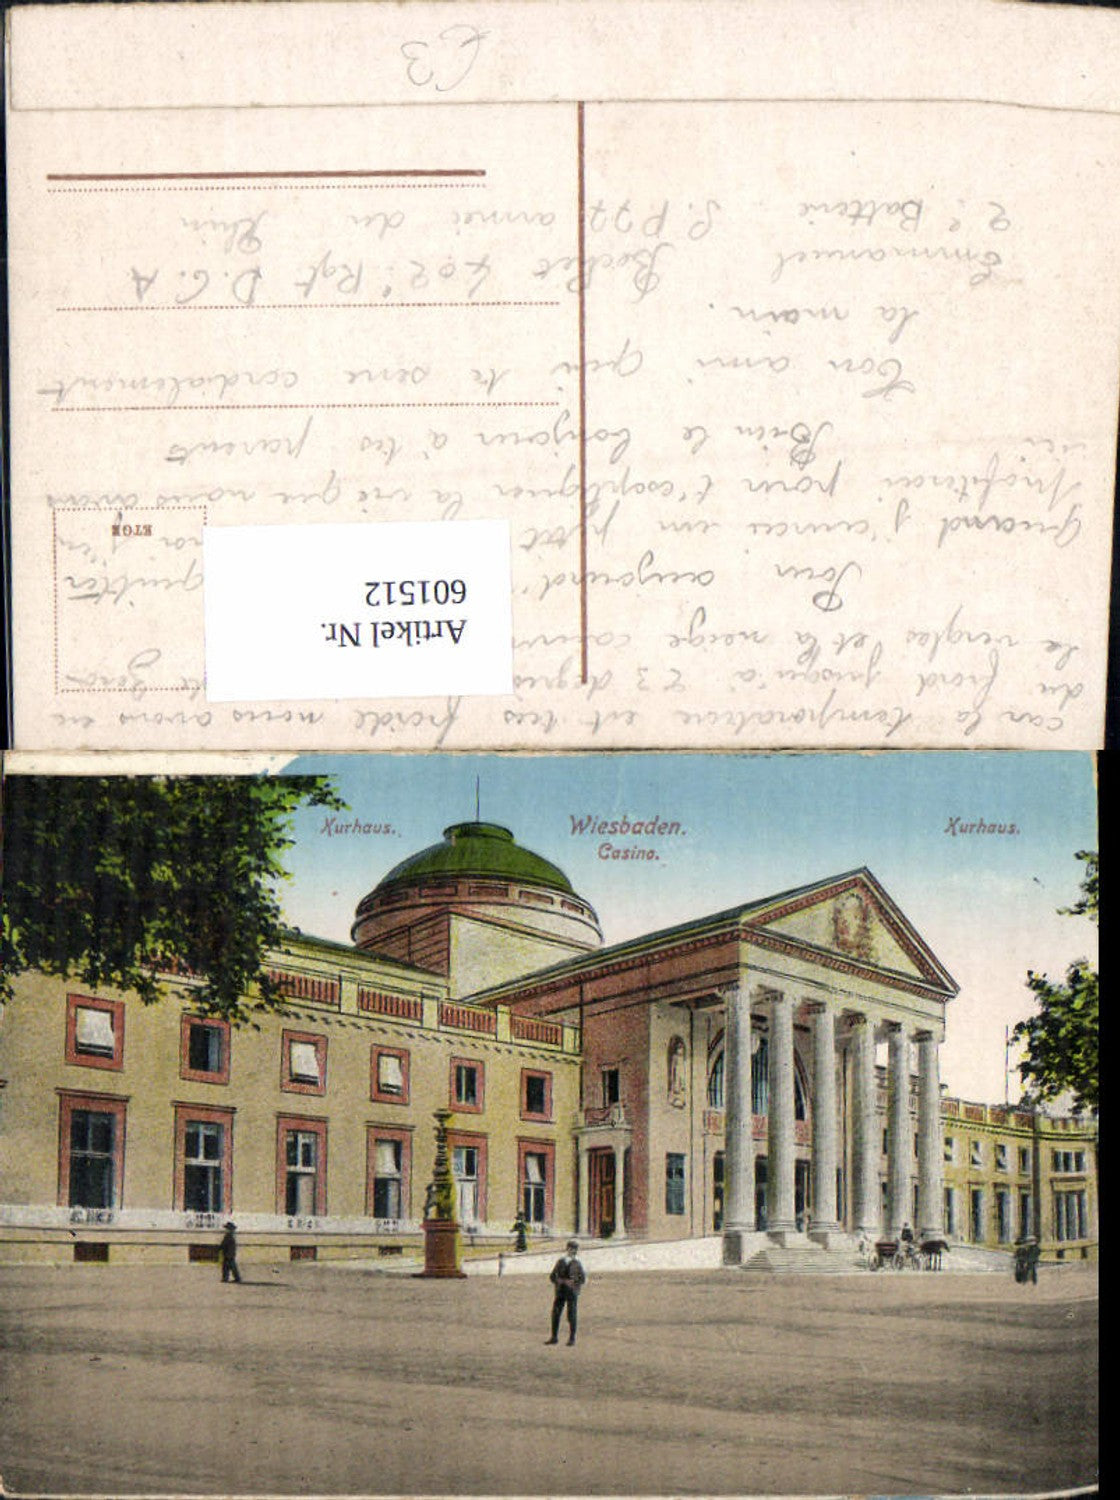 car la température est très froide nous avons eu
du froid jusqu'à 23 degrés zéro
le verglas et la neige
Pour aujourd' quitter
quand j'aurai un petit j'en
profiterai pour t'expliquer la vie que nous avons
ici. Bien le bonjour à tes parents
Ton ami qui te serre cordialement
la main.
Emmanuel 402e Rgt D.C.A
2e Batterie S.P 77 armée du Rhin
Artikel Nr.
601512
£3
Kurhaus.
Wiesbaden.
Casino.
Kurhaus.